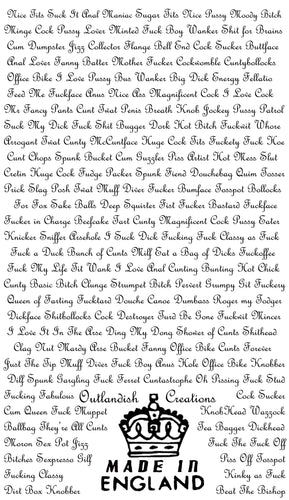 Nice Tits Suck It Anal Maniac Sugar Tits Nice Pussy Moody Bitch
Minge Cock Pussy Lover Minted Fuck Boy Wanker Shit for Brains
Cum Dumpster Jizz Collector Flange Bell End Cock Sucker Buttface
Anal Lover Fanny Batter Mother Fucker Cockwomble Cuntybollocks
Office Bike I Love Pussy Bus Wanker Big Dick Energy Fellatio
Feed Me Fuckface Anus Nice Ass Magnificent Cock I Love Cock
Mr Fancy Pants Cunt Twat Penis Breath Knob Jockey Pussy Patrol
Suck My Dick Fuck Shit Bugger Dork Hot Bitch Fuckwit Whore
Arrogant Twat Cunty McCuntface Huge Cock Tits Fuckety Fuck Hoe
Cunt Chops Spunk Bucket Cum Guzzler Piss Artist Hot Mess Slut
Cretin Huge Cock Fudge Packer Spunk Fiend Douchebag Quim Tosser
Prick Slag Posh Twat Muff Diver Fucker Bumface Tosspot Bollocks
For Fox Sake Balls Deep Squirter Fist Fucker Bastard Fuckface
Fucker in Charge Beefcake Fart Cunty Magnificent Cock Pussy Eater
Knicker Sniffer Arsehole I Suck Dick Fucking Fuck Classy as Fuck
Fuck a Duck Bunch of Cunts Milf Eat a Bag of Dicks Fuckoffee
Fuck My Life Fit Wank I Love Anal Cunting Bunting Hot Chick
Cunty Basic Bitch Clunge Strumpet Bitch Pervert Grumpy Git Fuckery
Queen of Farting Fucktard Douche Canoe Dumbass Roger my Todger
Dickface Shitbollocks Cock Destroyer Turd Be Gone Fuckwit Mincer
I Love It In The Arse Ding My Dong Shower of Cunts Shithead
Clag Nut Mardy Arse Bucket Fanny Office Bike Cunts Forever
Just The Tip Muff Diver Fuck Boy Anus Hole Office Bike Knobber
Dilf Spunk Gargling Fuck Ferret Cuntastrophe Oh Pissing Fuck Stud
Fucking Fabulous Outlandish Creations Cock Sucker
Cum Queen Fuck Muppet KnobHead Wazzock
Ballbag They're All Cunts Tea Bagger Dickhead
Moron Sex Pot Jizz Fuck The Fuck Off
Bitches Sexpresso Gilf Piss Off Tosspot
Fucking Classy MADE IN Kinky as Fuck
Dirt Box Knobber ENGLAND Beat The Bishop